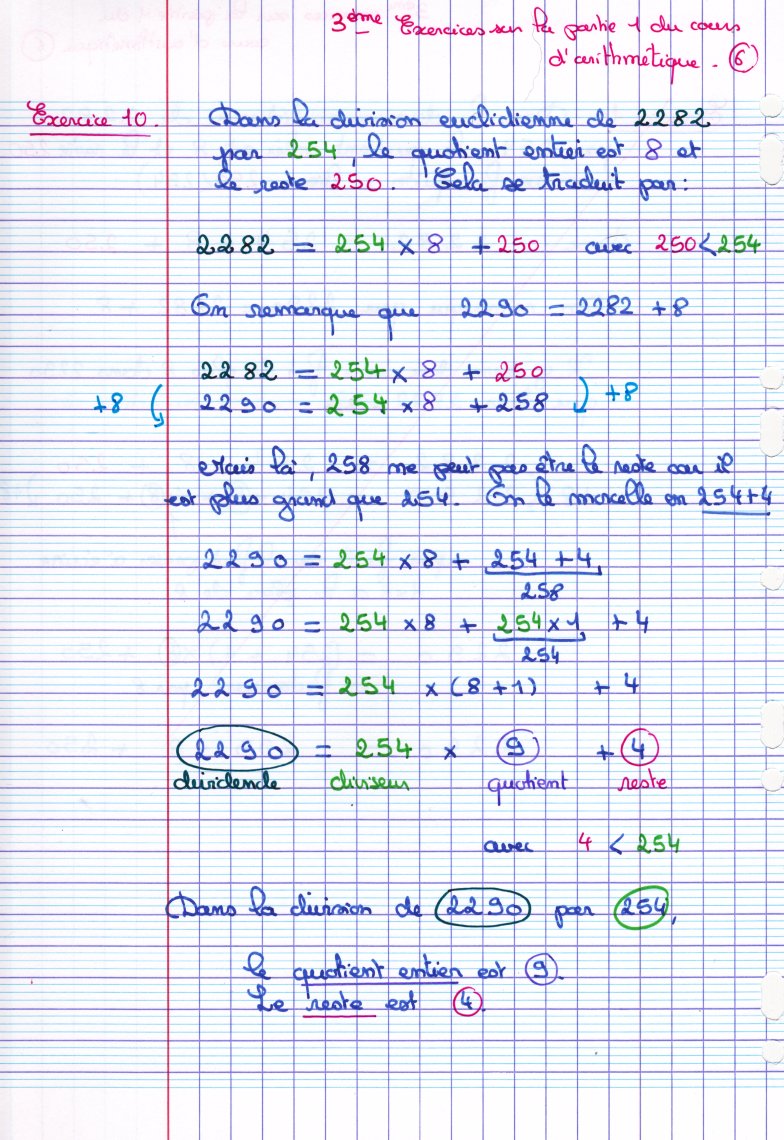 3ème Exercices sur la partie 1 du cours
d'arithmétique. 6
Exercice 10. Dans la division euclidienne de 2282
par 254, le quotient entier est 8 et
le reste 250. Cela se traduit par:
2282 = 254 × 8 + 250 avec 250 < 254
On remarque que 2290 = 2282 + 8
2282 = 254 × 8 + 250
+8 2290 = 254 × 8 + 258 +8
Mais là, 258 ne peut pas être le reste car il
est plus grand que 254. On le morcelle en 254+4
2290 = 254 × 8 + 254 + 4
258
2290 = 254 × 8 + 254 × 1 + 4
254
2290 = 254 × (8 + 1) + 4
2290 = 254 × 9 + 4
dividende diviseur quotient reste
avec 4 < 254
Dans la division de 2290 par 254,
le quotient entier est 9.
Le reste est 4.